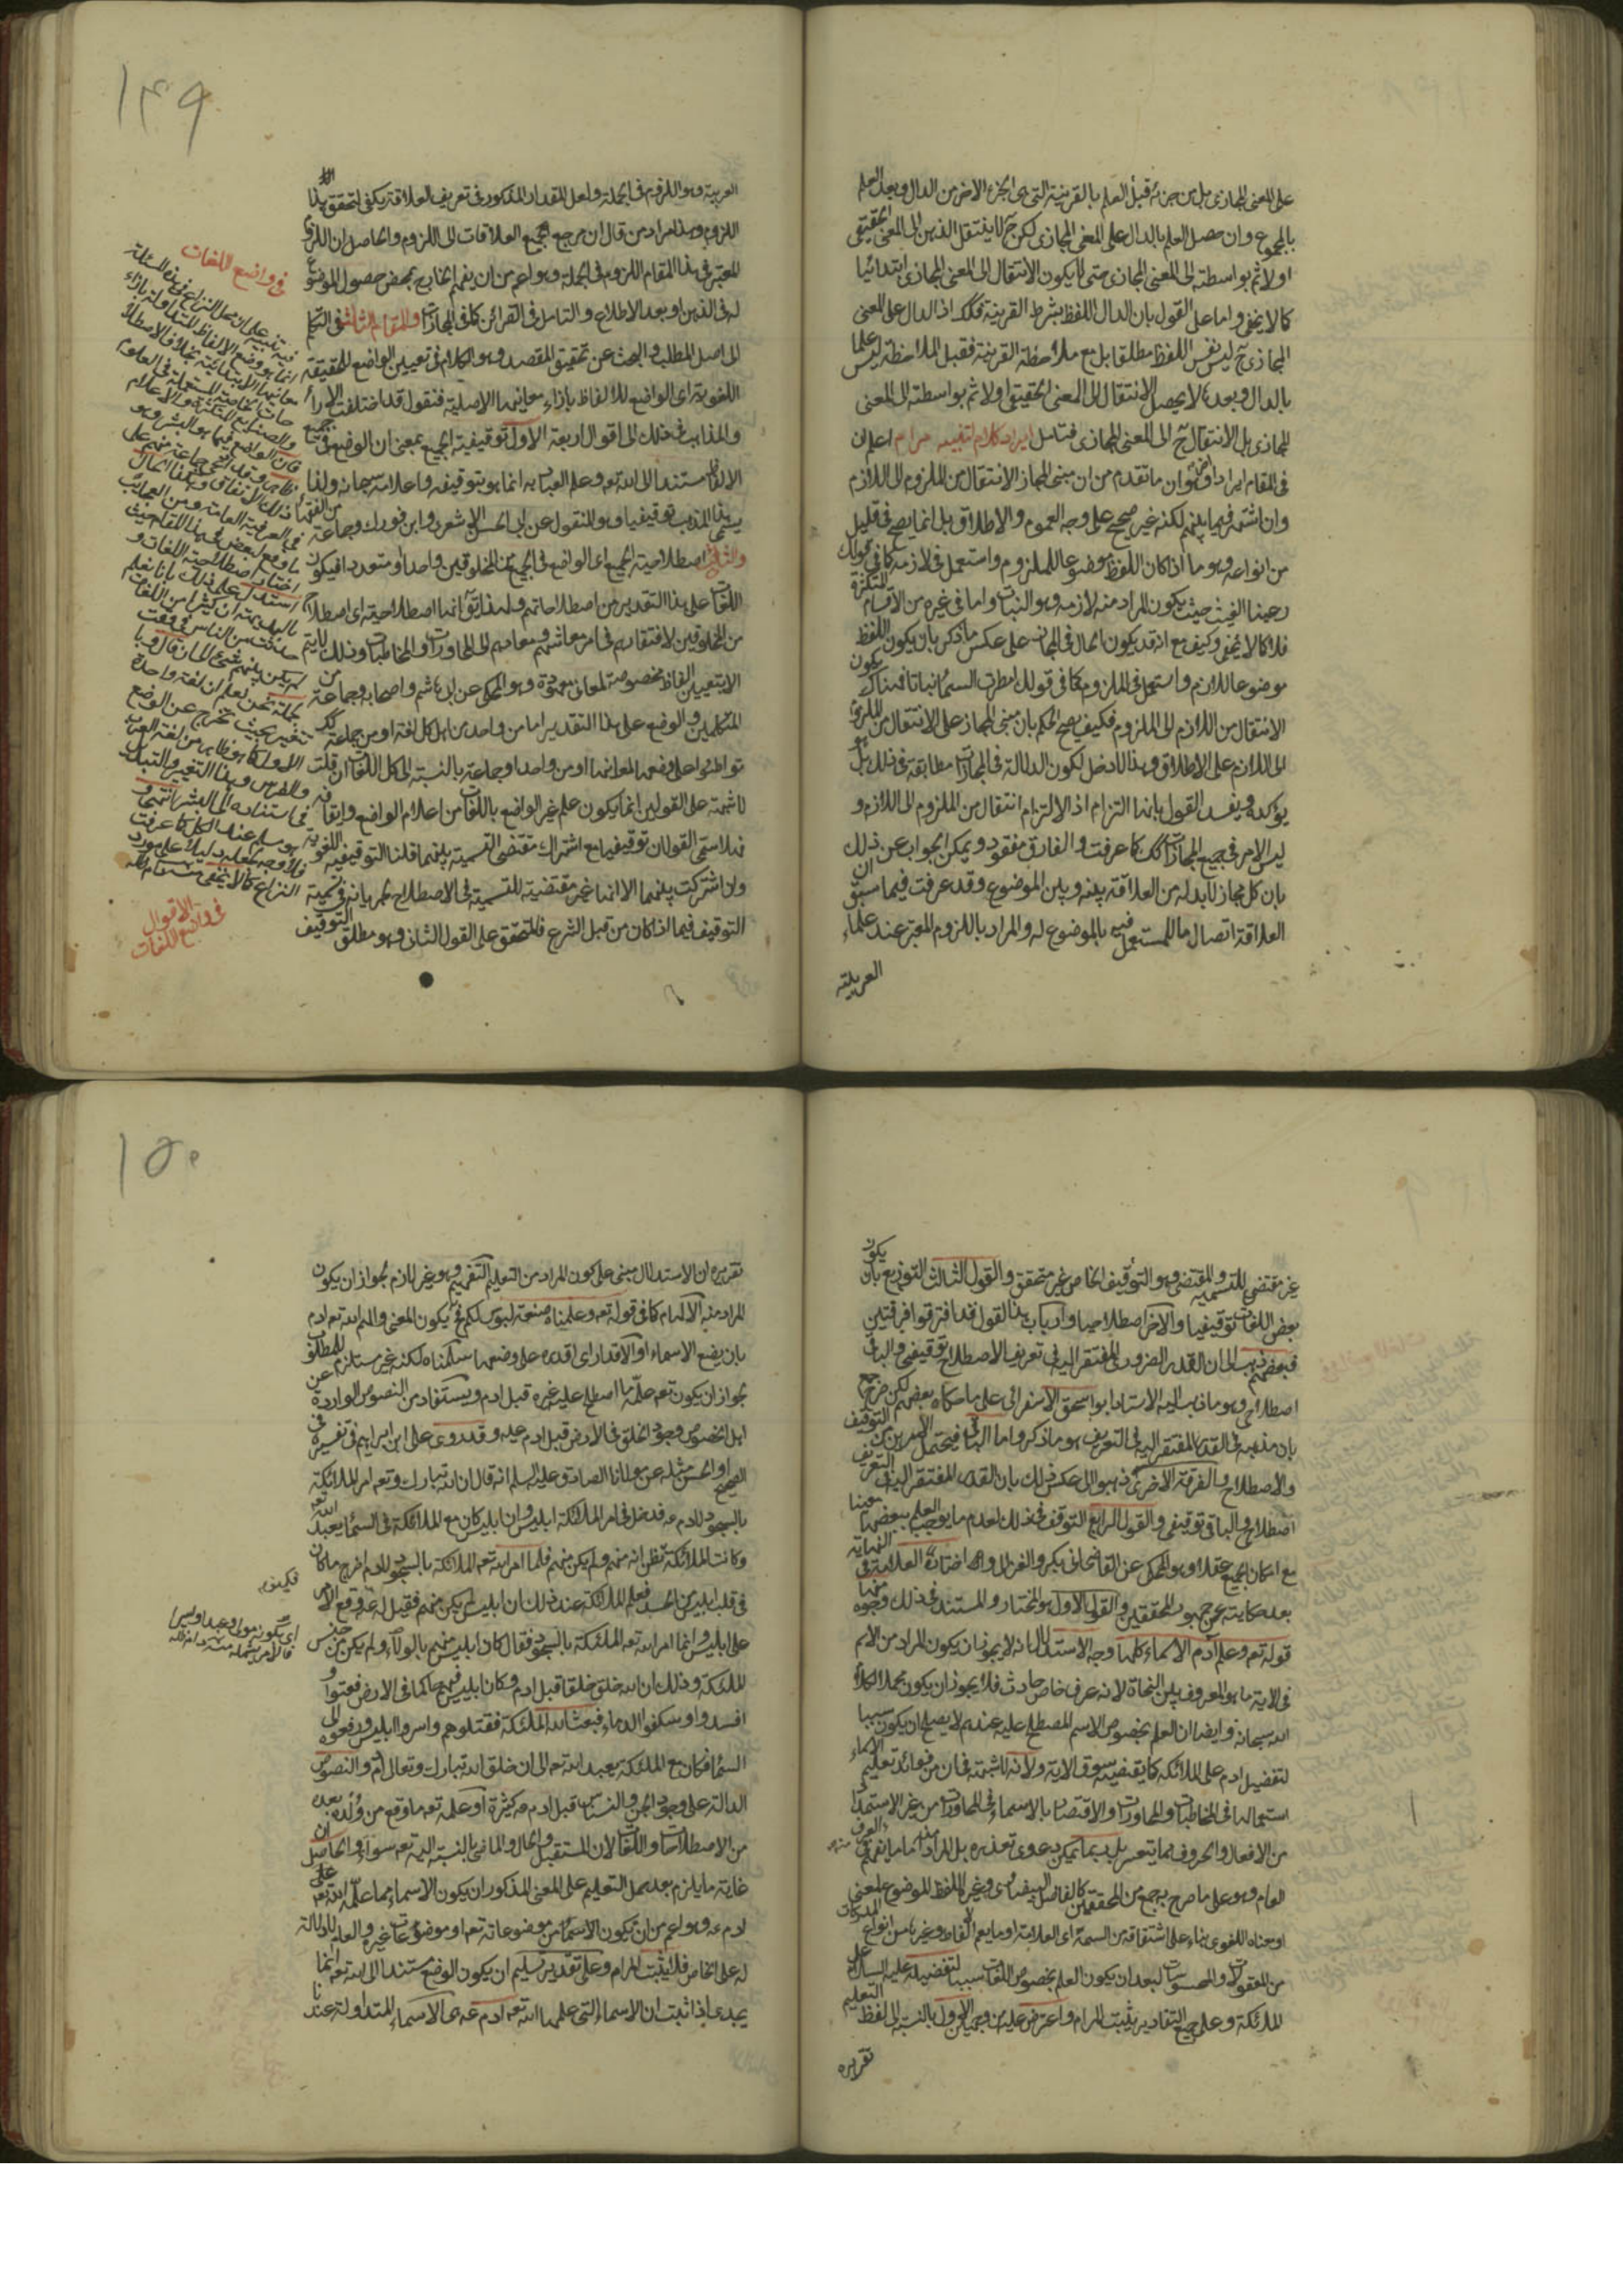 على المعنى المجازى بل من جزئه قبل العلم بالقرينة التى هى الجزء الاخر من الدال وبعد العلم
بالمجموع وان حصل العلم بالدال على المعنى المجازى لكن ح لا ينتقل الذهن الى المعنى الحقيقى
اولا ثم بواسطته الى المعنى المجازى حتى لا يكون الانتقال الى المعنى المجازى ابتدائيا
كما لا يخفى واما على القول بان الدال اللفظ بشرط القرينة فكك اذ الدال على المعنى
المجازى ح ليس نفس اللفظ مطلقا بل مع ملاحظة القرينة فقبل الملاحظة ليس علما
بالدال وبعدها لا يحصل الانتقال الى المعنى الحقيقى اولا ثم بواسطته الى المعنى
المجازى بل الانتقال ح الى المعنى المجازى فتامل ايراد كلام لتنبيه مرام اعلم ان
فى المقام ايراد اوضح وان ما تقدم من ان مبنى المجاز الانتقال من الملزوم الى اللازم
وان اشتهر فيما بينهم لكنه غير صحيح على وجه العموم والاطلاق بل انما يصح فى قليل
من انواعه وهو ما اذا كان اللفظ موضوعا للملزوم واستعمل فى لازمه كما فى قولك
رعينا الغيث حيث يكون المراد منه لازمه وهو النبات واما فى غيره من الاقسام المتكثرة
فلا كما لا يخفى وكيف مع انه قد يكون الحال فى المجاز على عكس ما ذكر بان يكون اللفظ
موضوعا للازم واستعمل فى الملزوم كما فى قولك امطرت السماء نباتا فهناك يكون
الانتقال من اللازم الى الملزوم فكيف يصح الحكم بان مبنى المجاز على الانتقال من الملزوم
الى اللازم على الاطلاق وهذا لا دخل لكون الدلالة فى المجازات مطابقة فى ذلك بل هو
يؤكده ويفسد القول بانها التزام اذ الالتزام انتقال من الملزوم الى اللازم و
ليس الامر فى جميع المجازات كك كما عرفت والفارق مفقود ويمكن الجواب عن ذلك
بان كل مجاز لا بد له من العلاقة بينه وبين الموضوع وقد عرفت فيما سبق ان
العلاقة اتصال ما للمستعمل فيه بالموضوع له والمراد باللزوم المعتبر عند علماء
العربية
١٤٩
العربية وهو اللزوم فى الجملة ولعل المقدار المذكور فى تعريف العلاقة يكفى لتحقق هذا
اللزوم وهذا مراد من قال ان مرجع جميع العلاقات الى اللزوم والحاصل ان اللزوم
المعتبر فى هذا المقام اللزوم فى الجملة وهو اعم من ان يفهم الخارج بمحض حصول الموضوع
له فى الذهن او بعد الاطلاع والتامل فى القرائن كما فى المجازات والمقام الثالث فى التكلم
الى اصل المطلب والبحث عن تحقيق المقصد وهو الكلام فى تعيين الواضع للحقيقة
اللغوية اى الواضع للالفاظ بازاء معانيها الاصلية فنقول قد اختلفت الاراء
والمذاهب فى ذلك الى اقوال اربعة الاول توقيفية الجميع بمعنى ان الوضع فى جميع
الالفاظ مستند الى الله تعه وعلم العباد به انما هو بتوقيفه واعلامه سبحانه ولذا
يسمى هذا المذهب توقيفيا وهو المنقول عن ابى الحسن الاشعرى وابن فورك وجماعة من الفقهاء
والثانى اصطلاحية الجميع اى الواضع فى الجميع من المخلوقين واحدا او متعددا فيكون
اللغات على هذا التقدير من اصطلاحاتهم ولهذا يق انها اصطلاحية اى اصطلاح
من المخلوقين لافتقارهم فى امر معاشهم ومعادهم الى المحاورات والمخاطبات وذلك لا يتم
الا بتعيين الفاظ مخصوصة لمعانى معهودة وهو المحكى عن ابى هاشم واصحابه وجماعة من
المتكلمين والوضع على هذا التقدير اما من واحد من اهل كل لغة او من جماعة
تواطئوا على وضعها لمعانيها او من واحد او جماعة بالنسبة الى كل اللغات ان قلت
لا شبهة على القولين انما يكون علم غير الواضع باللغات من اعلام الواضع وايقافه
فلا سمى القولان توقيفيا مع اشتراك مقتضى التسمية بينهما قلنا التوقيفية اللغوية
وان اشتركت بينهما الا انها غير مقتضية للتسمية فى الاصطلاح لجريانه فى تسمية
التوقيف فيما اذا كان من قبل الشرع فالمتحقق على القول الثانى وهو مطلق التوقيف
فى واضع اللغات
فيه تنبيه على ان محل النزاع فى هذه المسئلة
انما هو وضع الالفاظ المتداولة بازاء
معانيها الابتدائية بخلاف الاصطلا
حات الخاصة المستعملة فى العلوم
والصنايع المتكثرة والاعلام
فان الواضع فيها هو البشر وهو
ظاهر وقد ادعى جماعة منهم على
ذلك الاتفاق
فى الاقوال
فى واضع اللغات
غير مقتضى للتسمية والمقتضى وهو التوقيف الخاص غير متحقق والقول الثالث التوزيع بان يكون
بعض اللغات توقيفيا والآخر اصطلاحيا وارباب هذا القول قد افترقوا فرقتين
فبعضهم ذهب الى ان القدر الضرورى المفتقر اليه فى تعريف الاصطلاح توقيفى والباقى
اصطلاحى وهو ما ذهب اليه الاستاد ابو اسحق الاسفرائى على ما حكاه بعضهم لكن صرح جمع
بان مذهبه فى القدر المفتقر اليه فى التعريف هو ما ذكر واما الباقى فيحتمل الامرين من التوقيف
والاصطلاح والفرقة الاخرى ذهبوا الى عكس ذلك بان القدر المفتقر اليه فى التعريف
اصطلاحى والباقى توقيفى والقول الرابع التوقف فى ذلك لعدم ما يوجب العلم ببعضها معينا
مع امكان الجميع عقلا وهو المحكى عن القاضى ابى بكر والغزالى واختاره العلامة فى النهاية
بعد حكايته عن جمهور المحققين والقول الاول هو المختار والمستند فى ذلك وجوه منها
قوله تعه وعلم آدم الاسماء كلها وجه الاستدلال انه لا يجوز ان يكون المراد من الاسم
فى الاية ما هو المعروف بين النحاة لانه عرف خاص حادث فلا يجوز ان يكون محمل الكلام
الله سبحانه وايضا ان العلم بخصوص الاسم المصطلح عليه عندهم لا يصلح ان يكون سببا
لتفضيل ادم على الملائكة كما يقتضيه سوق الاية ولانه لا شبهة فى ان من فوائد تعليم الاسماء
استعمالها فى المخاطبات والمحاورات والاقتصار بالاسماء فى المحاورات من غير الاستمداد
من الافعال والحروف مما يتعسر بل ربما يمكن دعوى تعذره بل المراد منه اما ما يفهم فى العرف
العام وهو على ما صرح به جمع من المحققين كالفاضل البيضاوى وغيره اللفظ الموضوع لمعنى
او معناه اللغوى بناء على اشتقاقه من السمة اى العلامة او ما يعم الالفاظ وغيرها من انواع المدركات
من المعقولات والمحسوسات لبعد ان يكون العلم بخصوص اللغات سببا لتفضيله عليه السلام على
الملائكة وعلى جميع التقادير يثبت المرام واعترض عليه من وجهين الاول بالنسبة الى لفظ التعليم
تقريره
١٥٠
تقريره ان الاستدلال مبنى على كون المراد من التعليم التفهيم وهو غير لازم لجواز ان يكون
المراد منه الالهام كما فى قوله تعه وعلمناه صنعة لبوس لكم فح يكون المعنى والهم الله تعه ادم
بان يضع الاسماء او الاقدار اى اقدره على وضعها سلمناه لكنه غير مستلزم للمطلوب
لجواز ان يكون تعه علمه ما اصطلح عليه غيره قبل ادم ويستفاد من النصوص الواردة عن
اهل الخصوص وجود الخلق فى الارض قبل ادم وقد روى على ابن ابراهيم فى تفسيره فى
الصحيح او الحسن مثله عن مولانا الصادق عليه السلم انه قال ان الله تبارك وتعه امر الملائكة
بالسجود لادم فدخل فى امر الملائكة ابليس وان ابليس كان مع الملائكة فى السماء يعبد الله تعه
وكانت الملائكة تظن انه منهم ولم يكن منهم فلما امر الله تعه الملائكة بالسجود لادم اخرج ما كان
فى قلب ابليس من الحسد فعلم الملائكة عند ذلك ان ابليس لم يكن منهم فقيل له فكيف وقع الامر
على ابليس وانما امر الله تعه الملائكة بالسجود فقال كان ابليس منهم بالولاء ولم يكن من جنس
الملائكة وذلك ان الله خلق خلقا قبل ادم وكان ابليس منهم حاكما فى الارض فعتوا و
افسدوا وسفكوا الدماء فبعث الله الملائكة فقتلوهم واسروا ابليس ورفعوه الى
السماء فكان مع الملائكة يعبد الله تعه الى ان خلق الله تبارك وتعالى ادم والنصوص
الدالة على وجود الجن والنسناس قبل ادم كثيرة او علمه تعه ما وقع من ولده بعده
من الاصطلاحات واللغات لان المستقبل والحال والماضى بالنسبة اليه تعه سواء والحاصل ان
غاية ما يلزم بعد حمل التعليم على المعنى المذكور ان يكون الاسماء مما علمه الله تعه على
ادم وهو اعم من ان تكون الاسماء من موضوعاته تعه او موضوعات غيره والعام لا دلالة
له على الخاص فلا يثبت المرام وعلى تقدير تسليم ان يكون الوضع مستندا الى الله تعه انما
يجدى اذا ثبت ان الاسماء التى علمها الله تعه ادم هى الاسماء المتداولة عندنا
اى يكون مولى وعبدا وليس